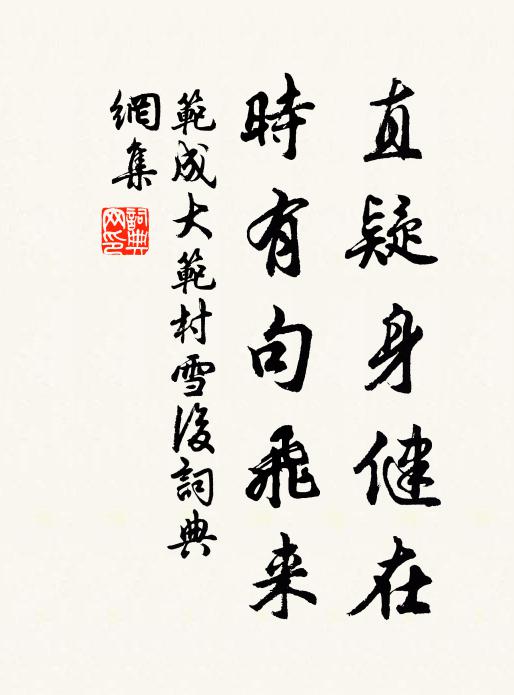 直疑身健在
時有句飛来
範成大範村雪後詞典
網集
詞典
网印